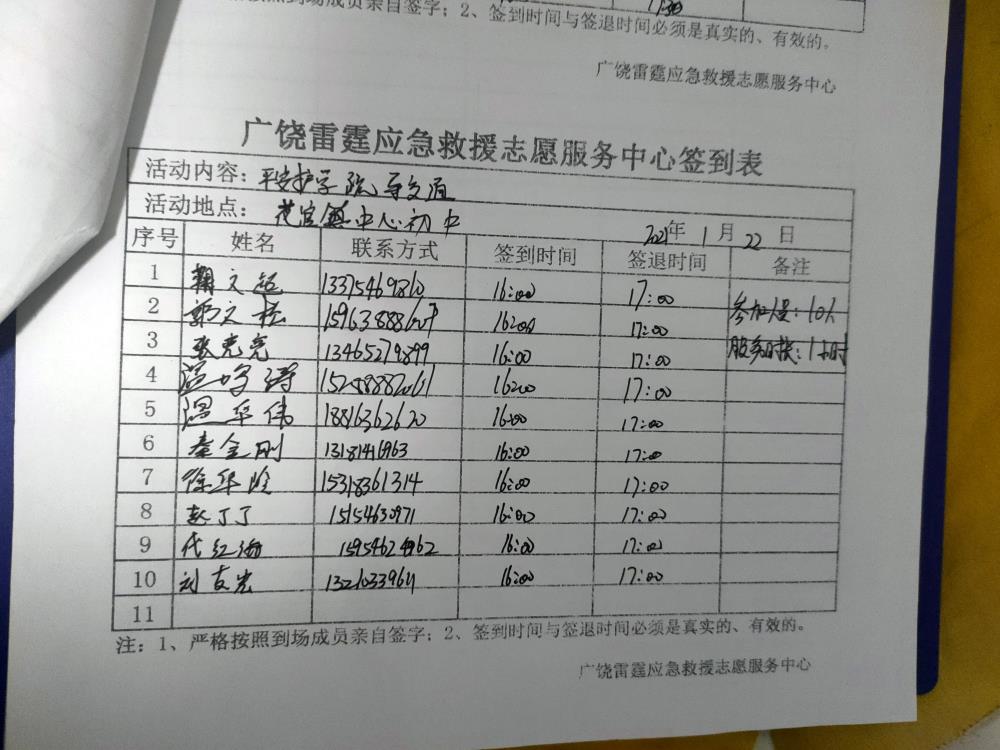 按照到场成员亲自签字；2、签到时间与签退时间必须是真实的、有效的。
广饶雷霆应急救援志愿服务中心
广饶雷霆应急救援志愿服务中心签到表
活动内容：平安护学 疏导交通
活动地点： 花官镇中心初中
2021年 1月 22日
序号 姓名 联系方式 签到时间 签退时间 备注
1 鞠文超 13375469810 16:00 17:00 参加人员：10人
2 郭文 16:00 17:00 服务时长：1小时
3 张亮亮 13465279899 16:00 17:00
4 温 16:00 17:00
5 温华伟 18816362620 16:00 17:00
6 秦金刚 13181416963 16:00 17:00
7 徐华 15318361314 16:00 17:00
8 赵丁丁 15154630971 16:00 17:00
9 代红海 16:00 17:00
10 刘友光 16:00 17:00
11
注：1、严格按照到场成员亲自签字；2、签到时间与签退时间必须是真实的、有效的。
广饶雷霆应急救援志愿服务中心